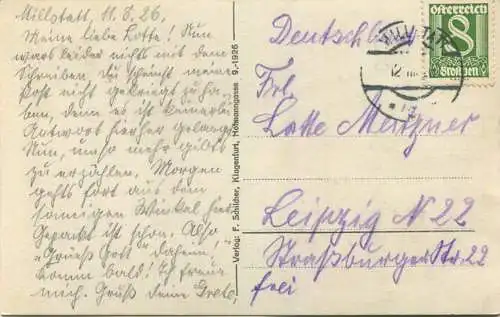 Millstatt, 11. 8. 26.
Meine liebe Lotte! Nun
wars leider nichts mit dem
Schreiben. Du scheinst meine
Post nicht gekriegt zu ha-
ben, denn es ist keinerlei
Antwort hierher gelangt.
Nun, umso mehr gibts
zu erzählen. Morgen
gehts fort aus dem
sonnigen Winkel hier
Gepackt ist schon. Also
"Grüess Gott" daheim,
komm bald! Ich freue
mich. Gruß deine Grete.
Verlag: F. Schilcher, Klagenfurt, Hofmanngasse 9.-1926
Deutschland
Österreich
8
Groschen
MILLSTATT
12
Frl.
Lotte Metzner
Leipzig N 22
Strassburger Str. 22
frei